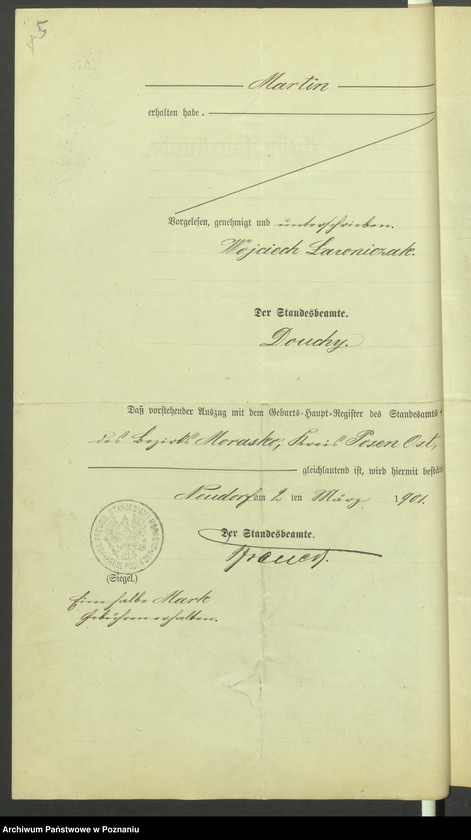 Martin
erhalten habe.
Vorgelesen, genehmigt und unterschrieben.
Wojciech Lawniczak.
Der Standesbeamte.
Douchy.
Daß vorstehender Auszug mit dem Geburts-Haupt-Register des Standesamts
des Bezirks Morasko, Kreis Posen Ost,
gleichlautend ist, wird hiermit bestät
Neudorf am 2 ten März 1901.
Der Standesbeamte.
(Siegel.)
Eine halbe Mark
Gebühren erhalten.
Archiwum Państwowe w Poznaniu